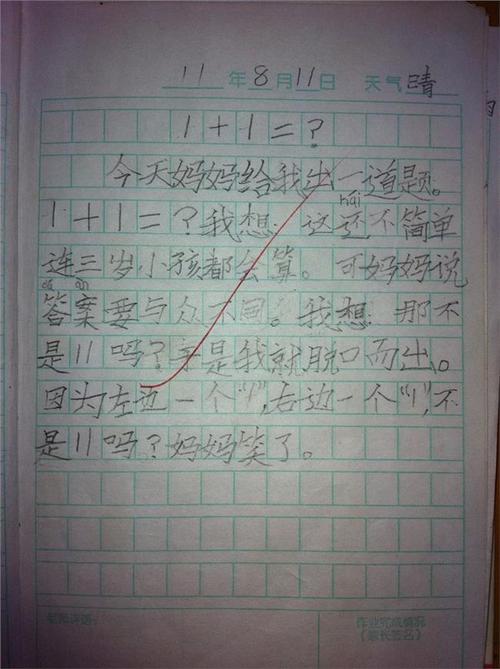 11年8月11日 天气晴
1+1=?
今天妈妈给我出一道题。
hái
1+1=?我想 这还不简单
连三岁小孩都会算。可妈妈说
dá àn
答案要与众不同。我想 那不
是11吗?于是我就脱口而出。
因为左边一个“1”,右边一个“1”,不
是11吗?妈妈笑了。
老师评语:
作业完成情况
(家长签名)